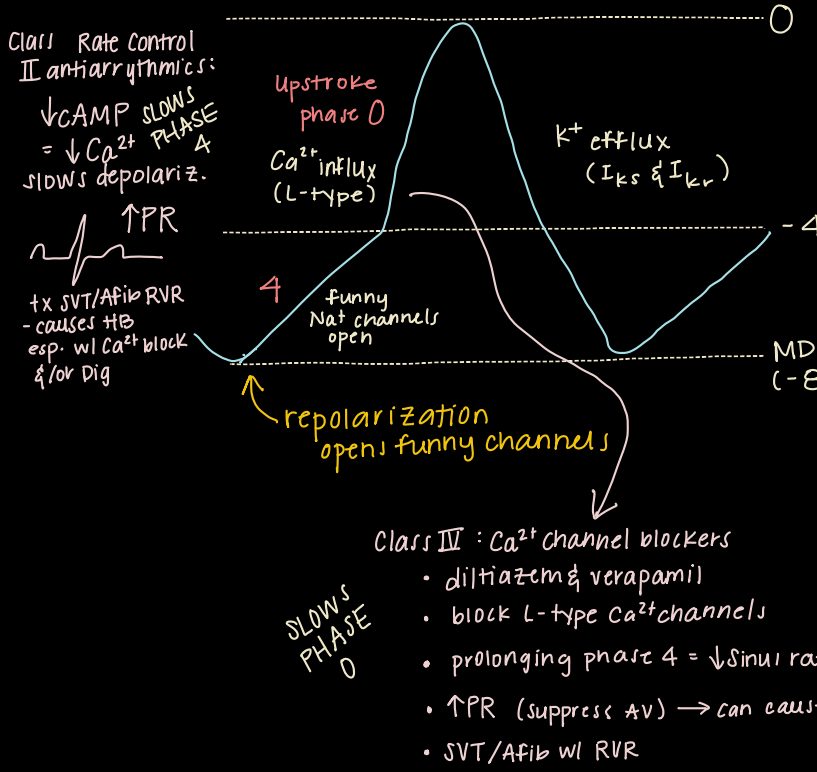 Class Rate Control
II antiarrythmics:
↓cAMP
= ↓ Ca²⁺
slows depolariz.
SLOWS
PHASE
4
↑PR
tx SVT/Afib RVR
- causes HB
esp. w/ Ca²⁺ block
&/or Dig
Upstroke
phase 0
Ca²⁺ influx
(L-type)
K⁺ efflux
(Iks & Ikr)
0
-4
4
funny
Na⁺ channels
open
MD
(-8
repolarization
opens funny channels
Class IV : Ca²⁺ channel blockers
• diltiazem & verapamil
• block L-type Ca²⁺ channels
• prolonging phase 4 = ↓sinus ra
• ↑PR (suppress AV) → can caus
• SVT/Afib w/ RVR
SLOWS
PHASE
0